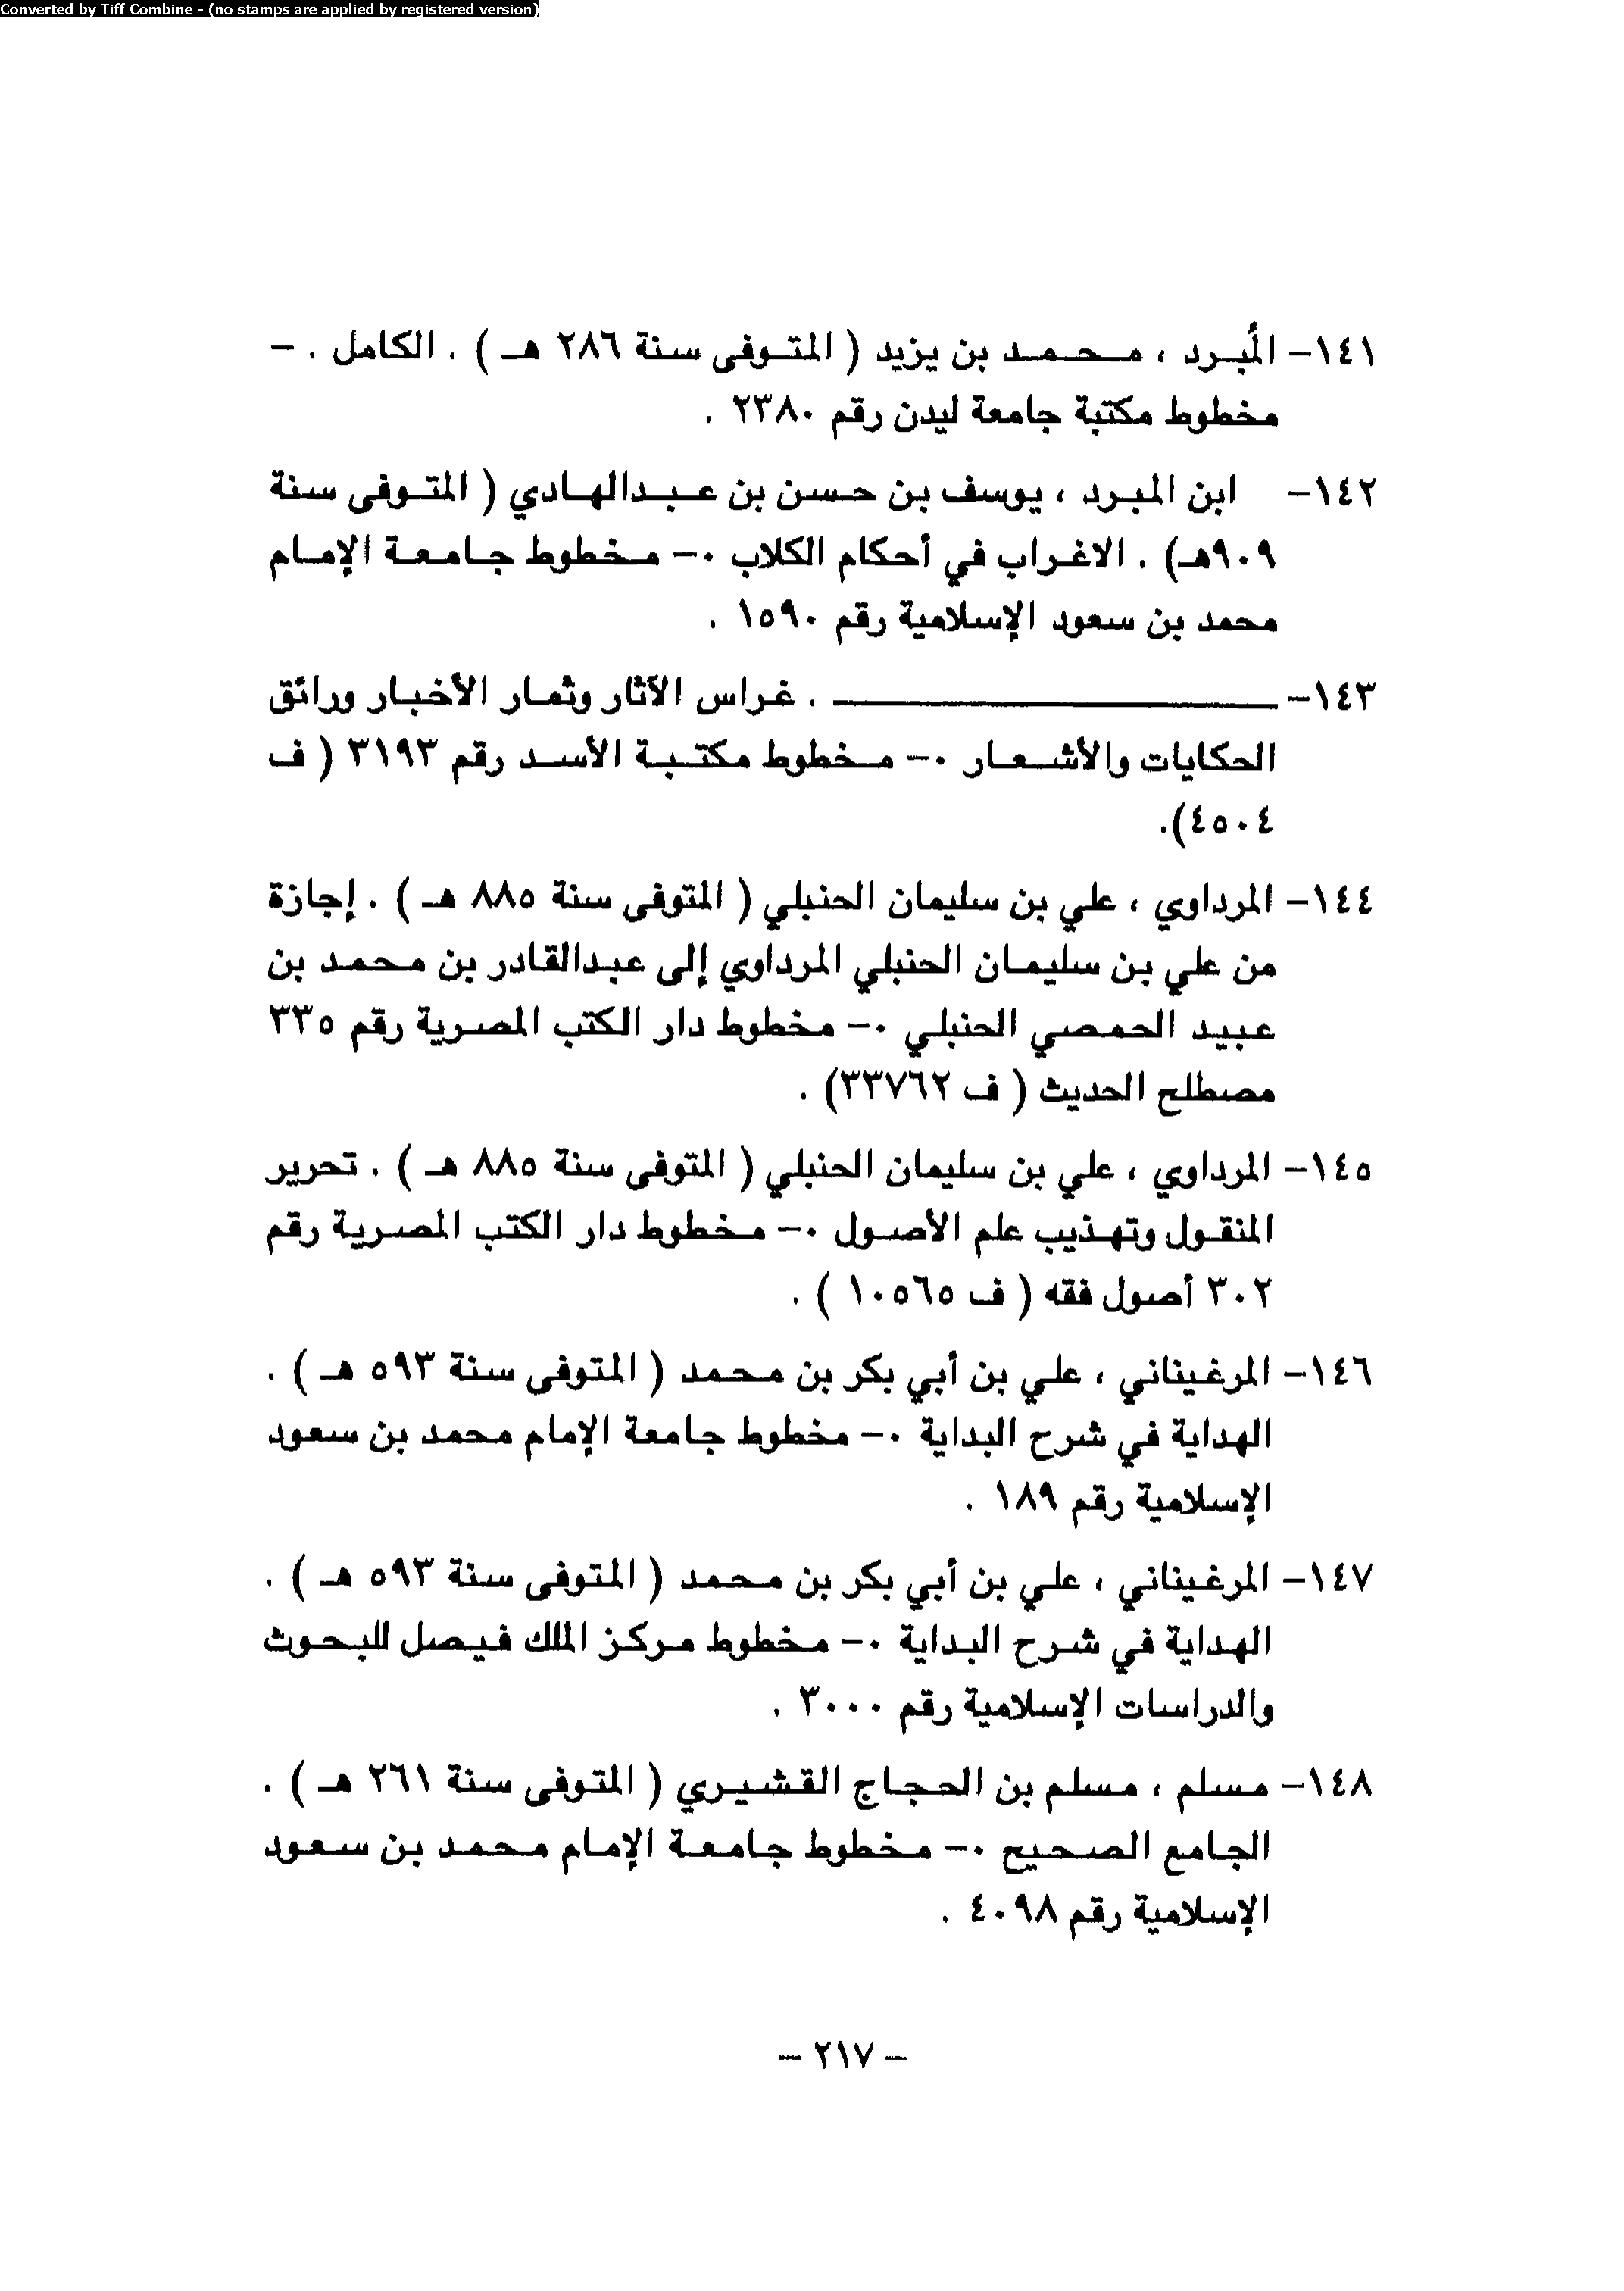 Converted by Tiff Combine - (no stamps are applied by registered version)
١٤١- المُبرد ، محمد بن يزيد ( المتوفى سنة ٢٨٦ هـ ) . الكامل . -
مخطوط مكتبة جامعة ليدن رقم ٢٣٨٠ .
١٤٢- ابن المبرد ، يوسف بن حسن بن عبدالهادي ( المتوفى سنة
٩٠٩هـ) . الاغراب في أحكام الكلاب ٠- مخطوط جامعة الإمام
محمد بن سعود الإسلامية رقم ١٥٩٠ .
١٤٣- ــــــــــــــــــــــــــــ . غراس الآثار وثمار الأخبار ورائق
الحكايات والأشعار ٠- مخطوط مكتبة الأسد رقم ٣١٩٣ ( ف
٤٥٠٤).
١٤٤- المرداوي ، علي بن سليمان الحنبلي ( المتوفى سنة ٨٨٥ هـ ) . إجازة
من علي بن سليمان الحنبلي المرداوي إلى عبدالقادر بن محمد بن
عبيد الحمصي الحنبلي ٠- مخطوط دار الكتب المصرية رقم ٣٣٥
مصطلح الحديث ( ف ٣٣٧٦٢) .
١٤٥- المرداوي ، علي بن سليمان الحنبلي ( المتوفى سنة ٨٨٥ هـ ) . تحرير
المنقول وتهذيب علم الأصول ٠- مخطوط دار الكتب المصرية رقم
٣٠٢ أصول فقه ( ف ١٠٥٦٥ ) .
١٤٦- المرغيناني ، علي بن أبي بكر بن محمد ( المتوفى سنة ٥٩٣ هـ ) .
الهداية في شرح البداية ٠- مخطوط جامعة الإمام محمد بن سعود
الإسلامية رقم ١٨٩ .
١٤٧- المرغيناني ، علي بن أبي بكر بن محمد ( المتوفى سنة ٥٩٣ هـ ) .
الهداية في شرح البداية ٠- مخطوط مركز الملك فيصل للبحوث
والدراسات الإسلامية رقم ٣٠٠٠ .
١٤٨- مسلم ، مسلم بن الحجاج القشيري ( المتوفى سنة ٢٦١ هـ ) .
الجامع الصحيح ٠- مخطوط جامعة الإمام محمد بن سعود
الإسلامية رقم ٤٠٩٨ .
- ٢١٧ -